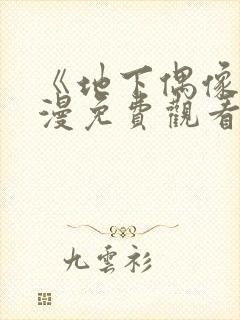 《地下偶像
漫免費觀看
九雲衫